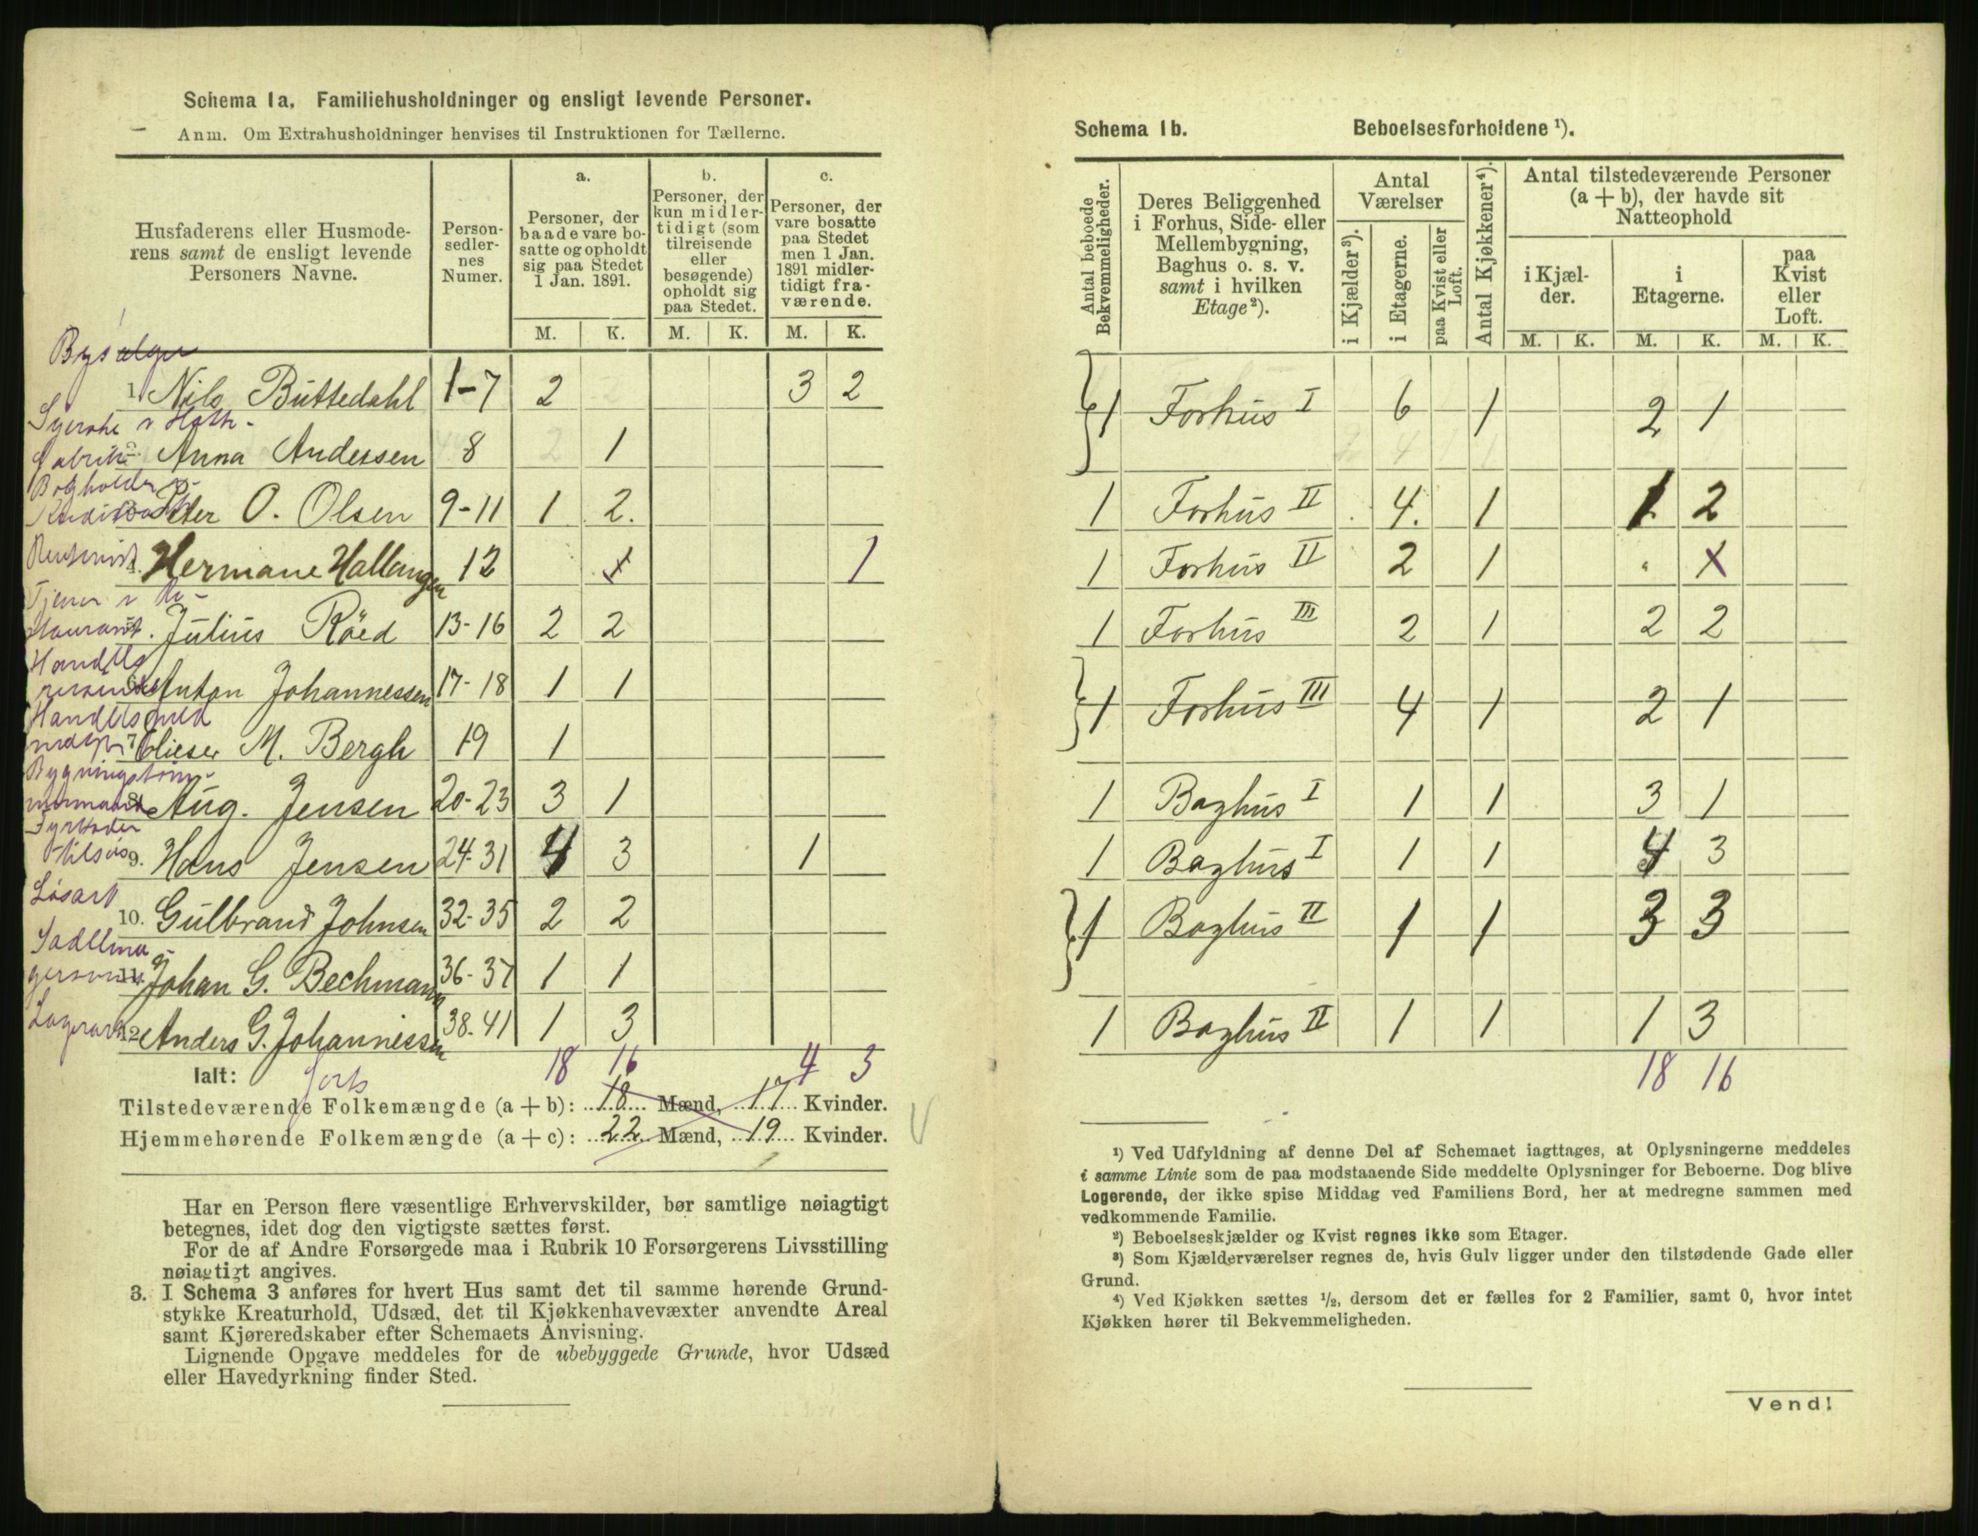 Schema 1a. Familiehusholdninger og ensligt levende Personer.
Anm. Om Extrahusholdninger henvises til Instruktionen for Tællerne.
Husfaderens eller Husmoderens samt de ensligt levende Personers Navne.
Personsedlernes Numer.
a. Personer, der baade vare bosatte og opholdt sig paa Stedet 1 Jan. 1891.
b. Personer, der kun midlertidigt (som tilreisende eller besøgende) opholdt sig paa Stedet.
c. Personer, der vare bosatte paa Stedet men 1 Jan. 1891 midlertidigt fraværende.
M. K. M. K. M. K.
Bysælger
1. Nils Buttedahl 1-7 2 3 2
Syerske v Hatte-
fabrik 2. Anna Andersen 8 1
Bogholder v.
3. Peter O. Olsen 9-11 1 2.
4. Hermane Hallangen 12 1 1
Tjener v Re-
staurant 5. Julius Röed 13-16 2 2
Handels
reisende 6. Anton Johannessen 17-18 1 1
Handels
7. Olieser M. Bergh 19 1
Bygningstøm-
mermand 8. Aug. Jensen 20-23 3 1
Fyrbøder
9. Hans Jensen 24-31 4 3 1
Løsarb
10. Gulbrand Johnsen 32-35 2 2
Sadelma-
gersvend 11. Johan G. Bechmann 36-37 1 1
Lagerarb 12. Anders G. Johannessen 38-41 1 3
Ialt: 18 16 4 3
Tilstedeværende Folkemængde (a + b): 18 Mænd, 17 Kvinder.
Hjemmehørende Folkemængde (a + c): 22 Mænd, 19 Kvinder.
Har en Person flere væsentlige Erhvervskilder, bør samtlige nøiagtigt
betegnes, idet dog den vigtigste sættes først.
For de af Andre Forsørgede maa i Rubrik 10 Forsørgerens Livsstilling
nøiagtigt angives.
3. I Schema 3 anføres for hvert Hus samt det til samme hørende Grund-
stykke Kreaturhold, Udsæd, det til Kjøkkenhavevæxter anvendte Areal
samt Kjøreredskaber efter Schemaets Anvisning.
Lignende Opgave meddeles for de ubebyggede Grunde, hvor Udsæd
eller Havedyrkning finder Sted.
Schema 1b. Beboelsesforholdene ¹).
Antal beboede Bekvemmeligheder.
Deres Beliggenhed i Forhus, Side- eller Mellembygning, Baghus o. s. v. samt i hvilken Etage²).
Antal Værelser
i Kjælder³).
i Etagerne.
paa Kvist eller Loft.
Antal Kjøkkener⁴).
Antal tilstedeværende Personer (a + b), der havde sit Natteophold
i Kjælder.
i Etagerne.
paa Kvist eller Loft.
M. K. M. K. M. K.
1 Forhus I 6 1 2 1
1 Forhus II 4. 1 1 2
1 Forhus II 2 1 1
1 Forhus III 2 1 2 2
1 Forhus III 4 1 2 1
1 Baghus I 1 1 3 1
1 Baghus I 1 1 4 3
1 Baghus II 1 1 3 3
1 Baghus II 1 1 1 3
18 16
¹) Ved Udfyldning af denne Del af Schemaet iagttages, at Oplysningerne meddeles
i samme Linie som de paa modstaaende Side meddelte Oplysninger for Beboerne. Dog blive
Logerende, der ikke spise Middag ved Familiens Bord, her at medregne sammen med
vedkommende Familie.
²) Beboelseskjælder og Kvist regnes ikke som Etager.
³) Som Kjælderværelser regnes de, hvis Gulv ligger under den tilstødende Gade eller
Grund.
⁴) Ved Kjøkken sættes ¹/₂, dersom det er fælles for 2 Familier, samt 0, hvor intet
Kjøkken hører til Bekvemmeligheden.
Vend!